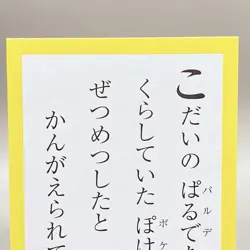 こだいの ぱるでa
くらしていた ぽけ
ぜつめつしたと
かんがえられて